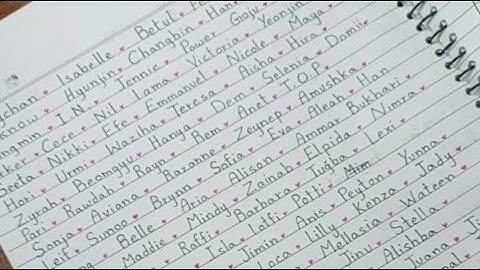 gchan Isabelle Betul
know Hyunjin Changbin Hann
ngmin I.N. Jennie Power Gaju
rker Cece Nil Lama Victoria Yeonjin
Seeta Nikki Efe Emmanuel Nicole Maya
Hori Urmi Waziha Teresa Aisha Hira
Zyrah Beomgyu Hanya Dem Selenia Damii
Pari Rawdah Rayn Bem Anet T.O.P
Sonja Aviana Razanne Zeynep Anushka
Leit Sunoo Brynn Sofia Eva Aleah Han
ng Belle Aria Alison Ammar Bukhari
Maddie Mindy Zainab Elpida Nimra
Raffi Barbara Tuğba Lexi
Isla Loifi Potti
Jimin Anis Peyton Yunna
Loca Lilly Kenza Jady
Mellasia Wateen
Jinu Stella
Alishba
Juana